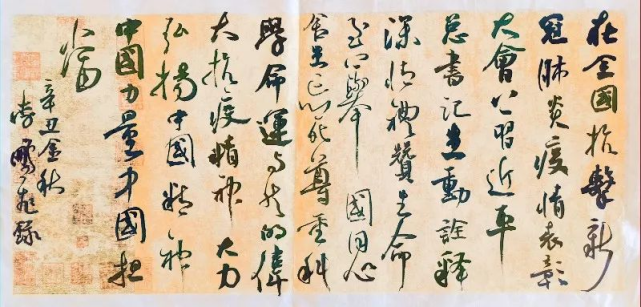 在全國抗擊新
冠肺炎疫情表彰
大會上習近平
总書记生動詮释
深情禮赞生命
至上舉國同心
舍生忘死尊重科
學命運与共的偉
大抗疫精神大力
弘揚中國精神
中國力量中國担
當
辛丑金秋
李鵬錄